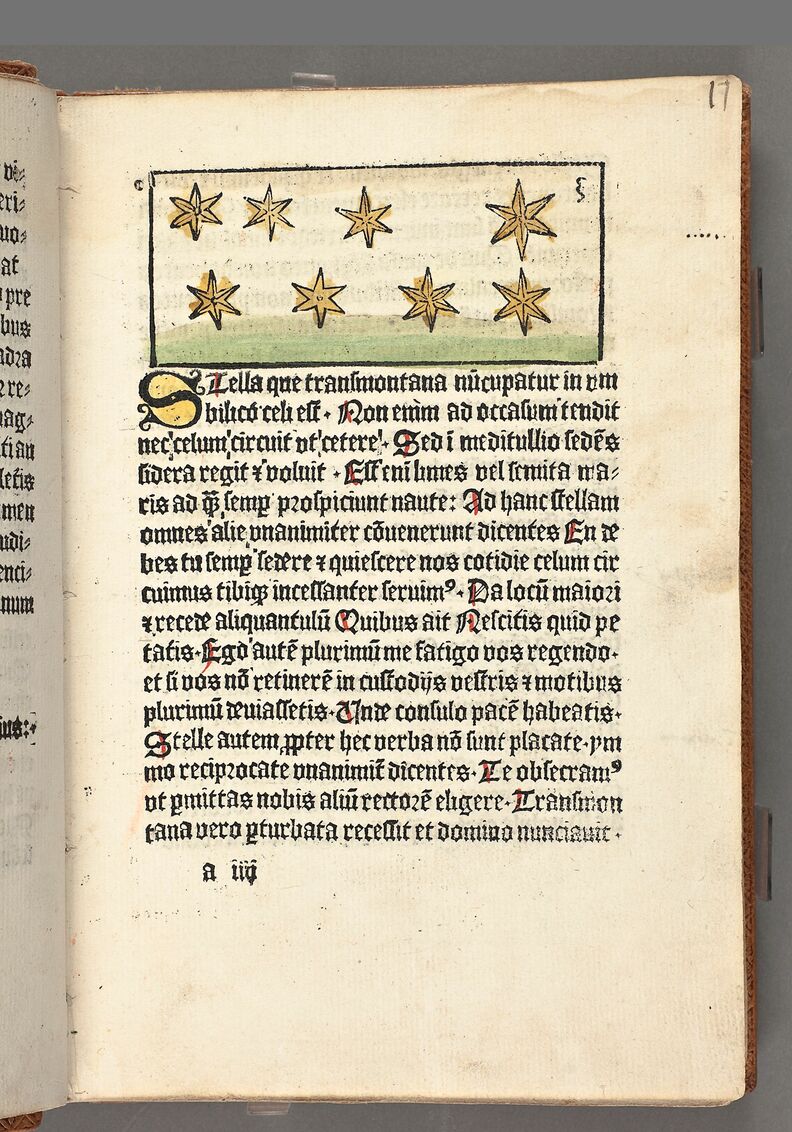 17
Stella que transmontana nūcupatur in vm
bilico celi est · Non enim ad occasum tendit
nec celum circuit vt cetere · Sed ī meditullio sedēs
sidera regit ⁊ voluit · Est enī limes vel semita ma⸗
ris ad qꝫ̄ semꝑ prospiciunt naute: Ad hanc stellam
omnes alie vnanimiter cōuenerunt dicentes En de
bes tu semꝑ sedere ⁊ quiescere nos cotidie celum cir
cuimus tibiqꝫ incessanter seruimꝰ · Da locū maiori
⁊ recede aliquantulū Quibus ait Nescitis quid pe
tatis · Ego autē plurimū me fatigo vos regendo ·
et si vos nō retinerē in custodijs vestris ⁊ motibus
plurimū deuiassetis · Unde consulo pacē habeatis ·
Stelle autem ꝓpter hec verba nō sunt placate · ym
mo reciprocate vnanimit̄ dicentes · Te obsecramꝰ
vt ꝑmittas nobis aliū rectorē eligere · Transmon
tana vero ꝑturbata recessit et domino nunciauit ·
a iiij
vi⸗
eri⸗
uo⸗
at
pre
bus
adra
re⸗
ag⸗
tian
letis
men
udi⸗
enci⸗
num
ius:·